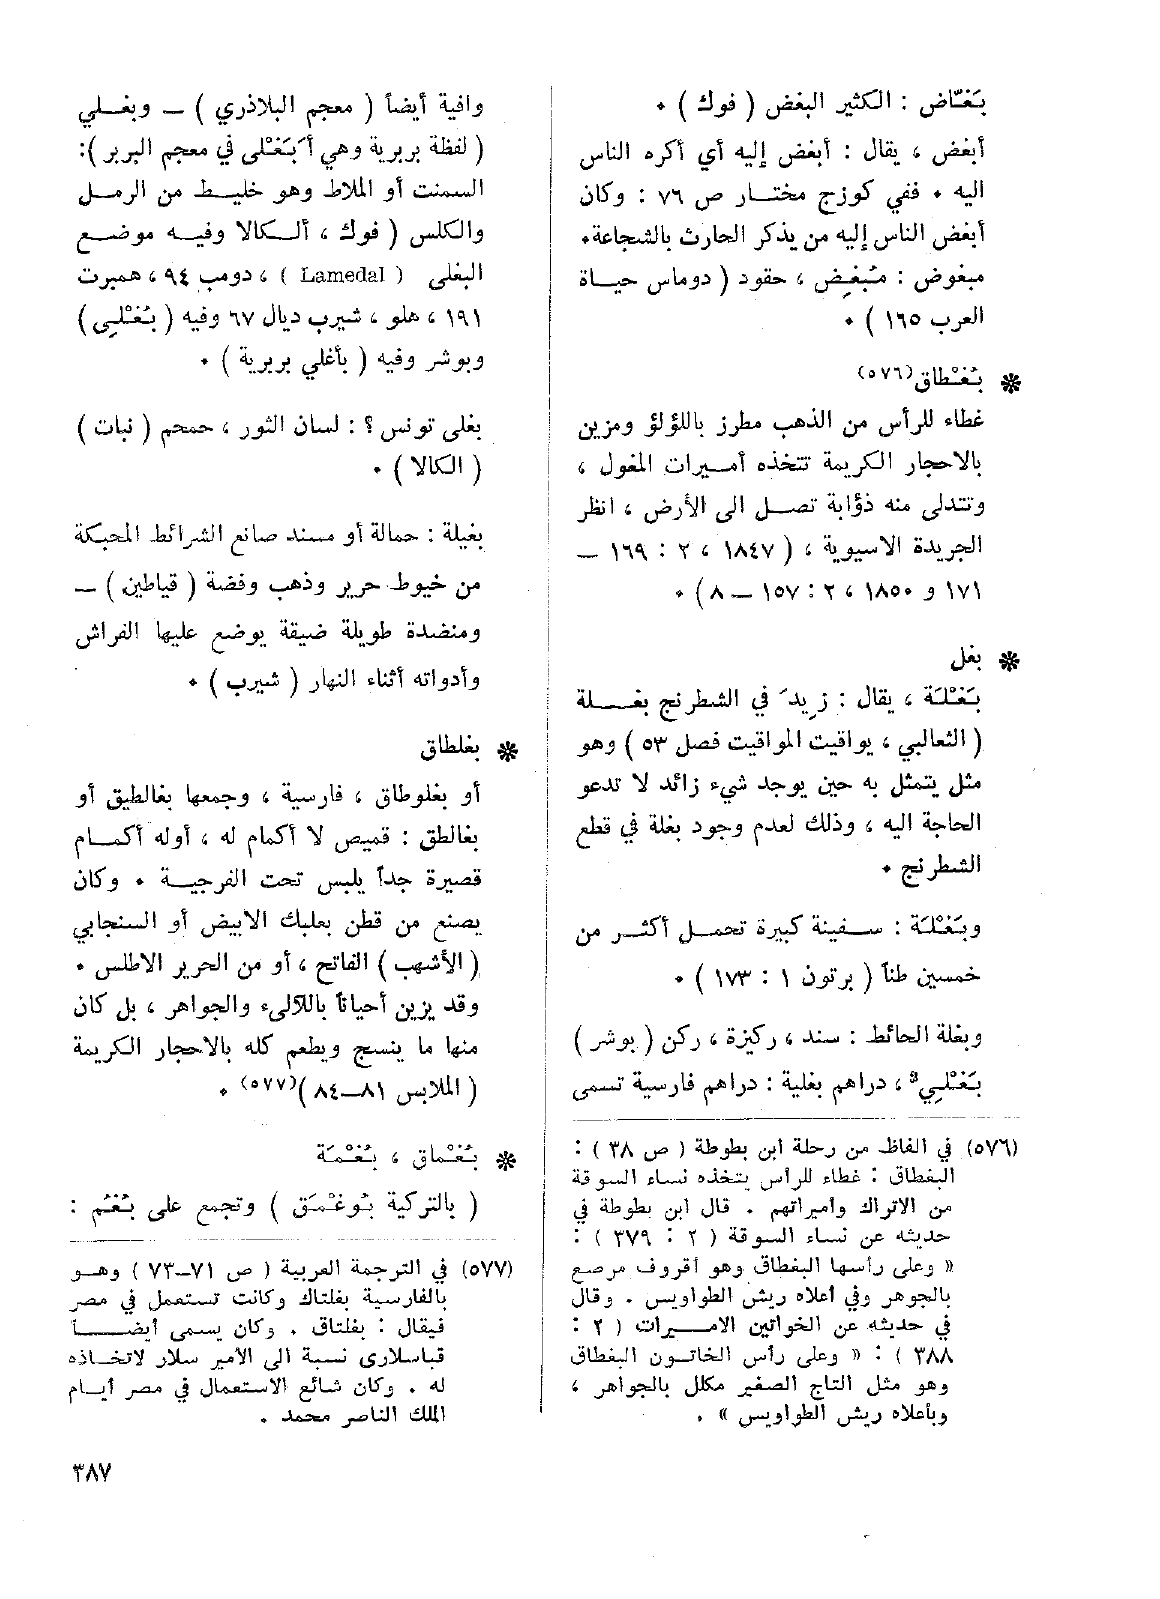 بَغّاض : الكثير البغض ( فوك ) ٠
أبغض ، يقال : أبغض إليه أي أكره الناس
اليه ٠ ففي كوزج مختــار ص ٧٦ : وكان
أبغض الناس إليه من يذكر الحارث بالشجاعة٠
مبغوض : مُبغِض ، حقود ( دوماس حيــاة
العرب ١٦٥ ) ٠
❋ بُغْطاق(٥٧٦)
غطاء للرأس من الذهب مطرز باللؤلؤ ومزين
بالاحجار الكريمة تتخذه أمــيرات المغول ،
وتتدلى منه ذؤابة تصــل الى الأرض ، انظر
الجريدة الاسيوية ، ( ١٨٤٧ ، ٢ : ١٦٩ ــ
١٧١ و ١٨٥٠ ، ٢ : ١٥٧ ــ ٨ ) ٠
❋ بغل
بَغْلَة ، يقال : زِيدَ في الشطرنج بغــــلة
( الثعالبي ، يواقيت المواقيت فصل ٥٣ ) وهو
مثل يتمثل به حين يوجد شيء زائد لا تدعو
الحاجة اليه ، وذلك لعدم وجود بغلة في قطع
الشطرنج ٠
وبَغْلَة : ســفينة كبيرة تحمــل أكثــر من
خمسين طناً ( برتون ١ : ١٧٣ ) ٠
وبغلة الحائط : سند ، ركيزة ، ركن ( بوشر )
بَغْلِيّ ، دراهم بغلية : دراهم فارسية تسمى
(٥٧٦) في الفاظ من رحلة ابن بطوطة ( ص ٣٨ ) :
البغطاق : غطاء للرأس يتخذه نساء السوقة
من الاتراك واميراتهم . قال ابن بطوطة في
حديثه عن نساء السوقة ( ٢ : ٣٧٩ ) :
« وعلى رأسها البغطاق وهو أقروف مرصع
بالجوهر وفي أعلاه ريش الطواويس . وقال
في حديثه عن الخواتين الاميــرات ( ٢ :
٣٨٨ ) : « وعلى رأس الخاتــون البغطاق
وهو مثل التاج الصغير مكلل بالجواهر ،
وبأعلاه ريش الطواويس » .
وافية أيضاً ( معجم البلاذري ) ــ وبغــلي
( لفظة بربرية وهي أَبَغْلى في معجم البربر ):
السمنت أو الملاط وهو خليــط من الرمــل
والكلس ( فوك ، ألــكالا وفيــه موضــع
البغلى ( Lamedal ) ، دومب ٩٤ ، همبرت
١٩١ ، هلو ، شيرب ديال ٦٧ وفيه ( بُغْلِي )
وبوشر وفيه ( بأغلي بربرية ) ٠
بغلى تونس ؟ : لسان الثور ، حمحم ( نبات )
( الكالا ) ٠
بغيلة : حمالة أو مسند صانع الشرائط المحبكة
من خيوط حرير وذهب وفضة ( قياطين ) ــ
ومنضدة طويلة ضيقة يوضع عليها الفراش
وأدواته أثناء النهار ( شيرب ) ٠
❋ بغلطاق
أو بغلوطاق ، فارسية ، وجمعها بغالطيق أو
بغالطق : قميص لا أكمام له ، أوله أكمــام
قصيرة جداً يلبس تحت الفرجيــة ٠ وكان
يصنع من قطن بعلبك الابيض أو السنجابي
( الأشهب ) الفاتح ، أو من الحرير الاطلس ٠
وقد يزين أحياناً باللآلىء والجواهر ، بل كان
منها ما ينسج ويطعم كله بالاحجار الكريمة
( الملابس ٨١ــ٨٤ )(٥٧٧) ٠
❋ بُغْماق ، بُغْمَة
( بالتركية بُوغْمَق ) وتجمع على بُغُم :
(٥٧٧) في الترجمة العربية ( ص ٧١ــ٧٣ ) وهــو
بالفارسية بغلتاك وكانت تستعمل في مصر
فيقال : بغلتاق . وكان يسمى أيضــــاً
قباسلارى نسبة الى الأمير سلار لاتخــاذه
له . وكان شائع الاستعمال في مصر أيــام
الملك الناصر محمد .
٣٨٧